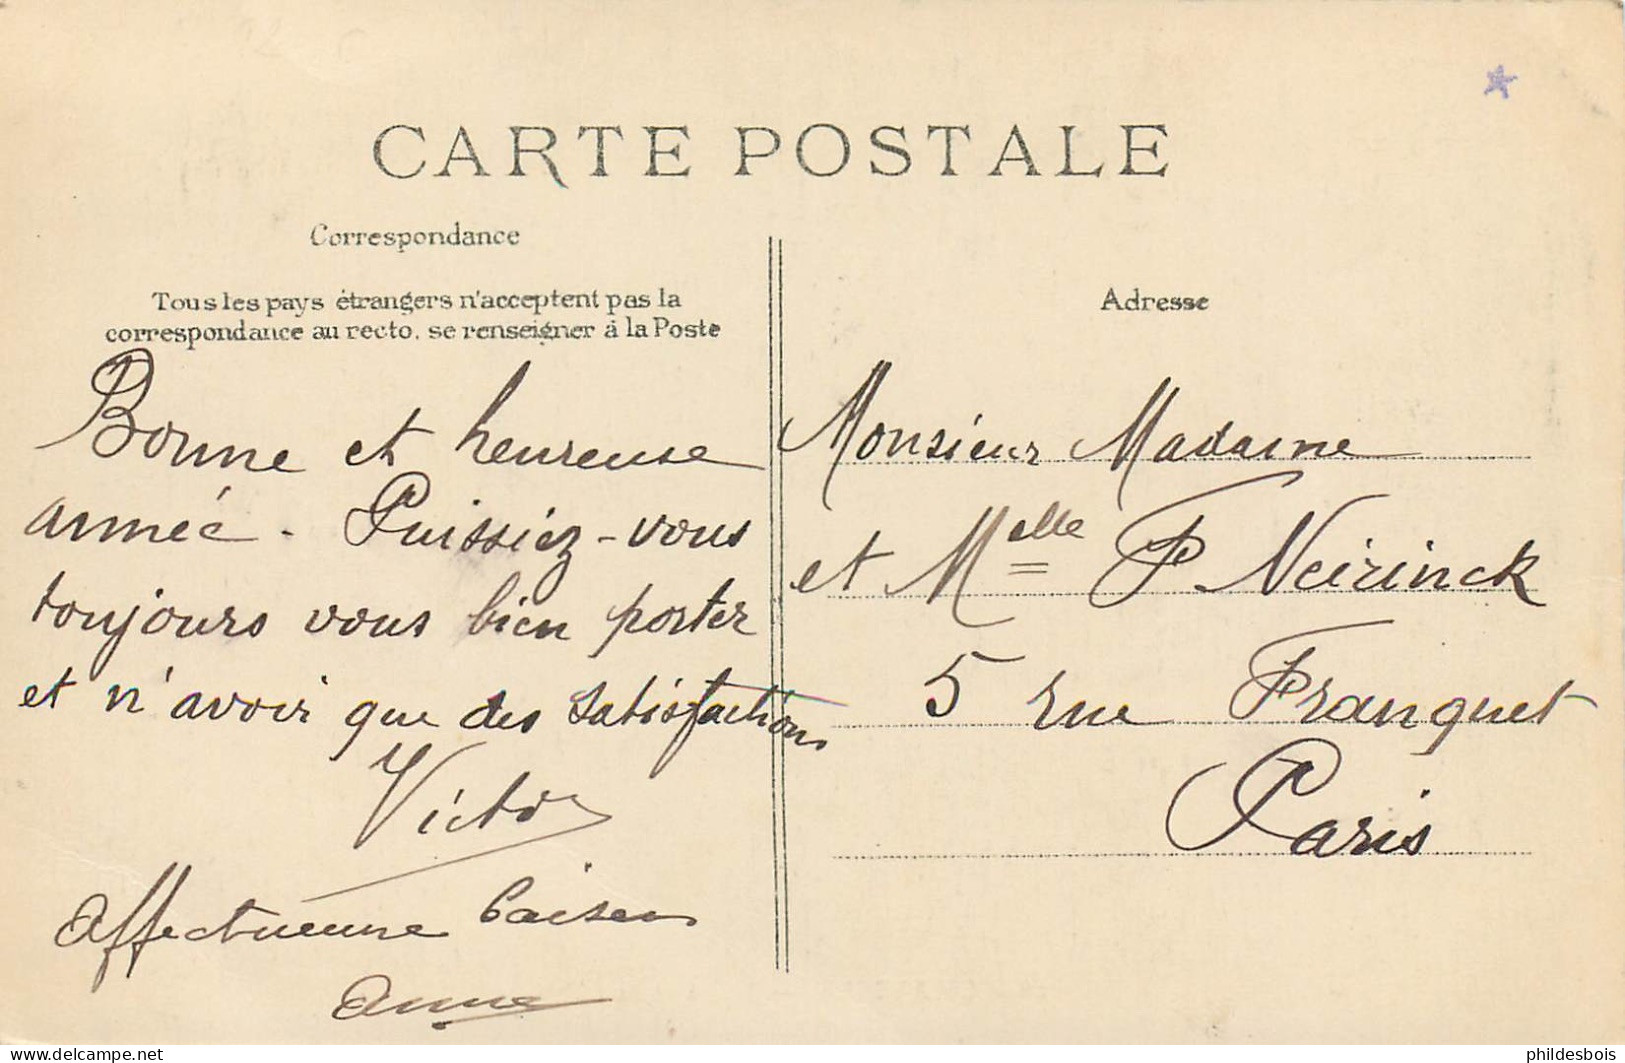 CARTE POSTALE
Correspondance
Tous les pays étrangers n'acceptent pas la
correspondance au recto, se renseigner à la Poste
Bonne et heureuse
année - Puissiez-vous
toujours vous bien porter
et n'avoir que des satisfactions
Victor
Affectueuse baisers
Anna
Adresse
Monsieur Madame
et Melle P Neirinck
5 rue Franquet
Paris
www.delcampe.net
phildesbois